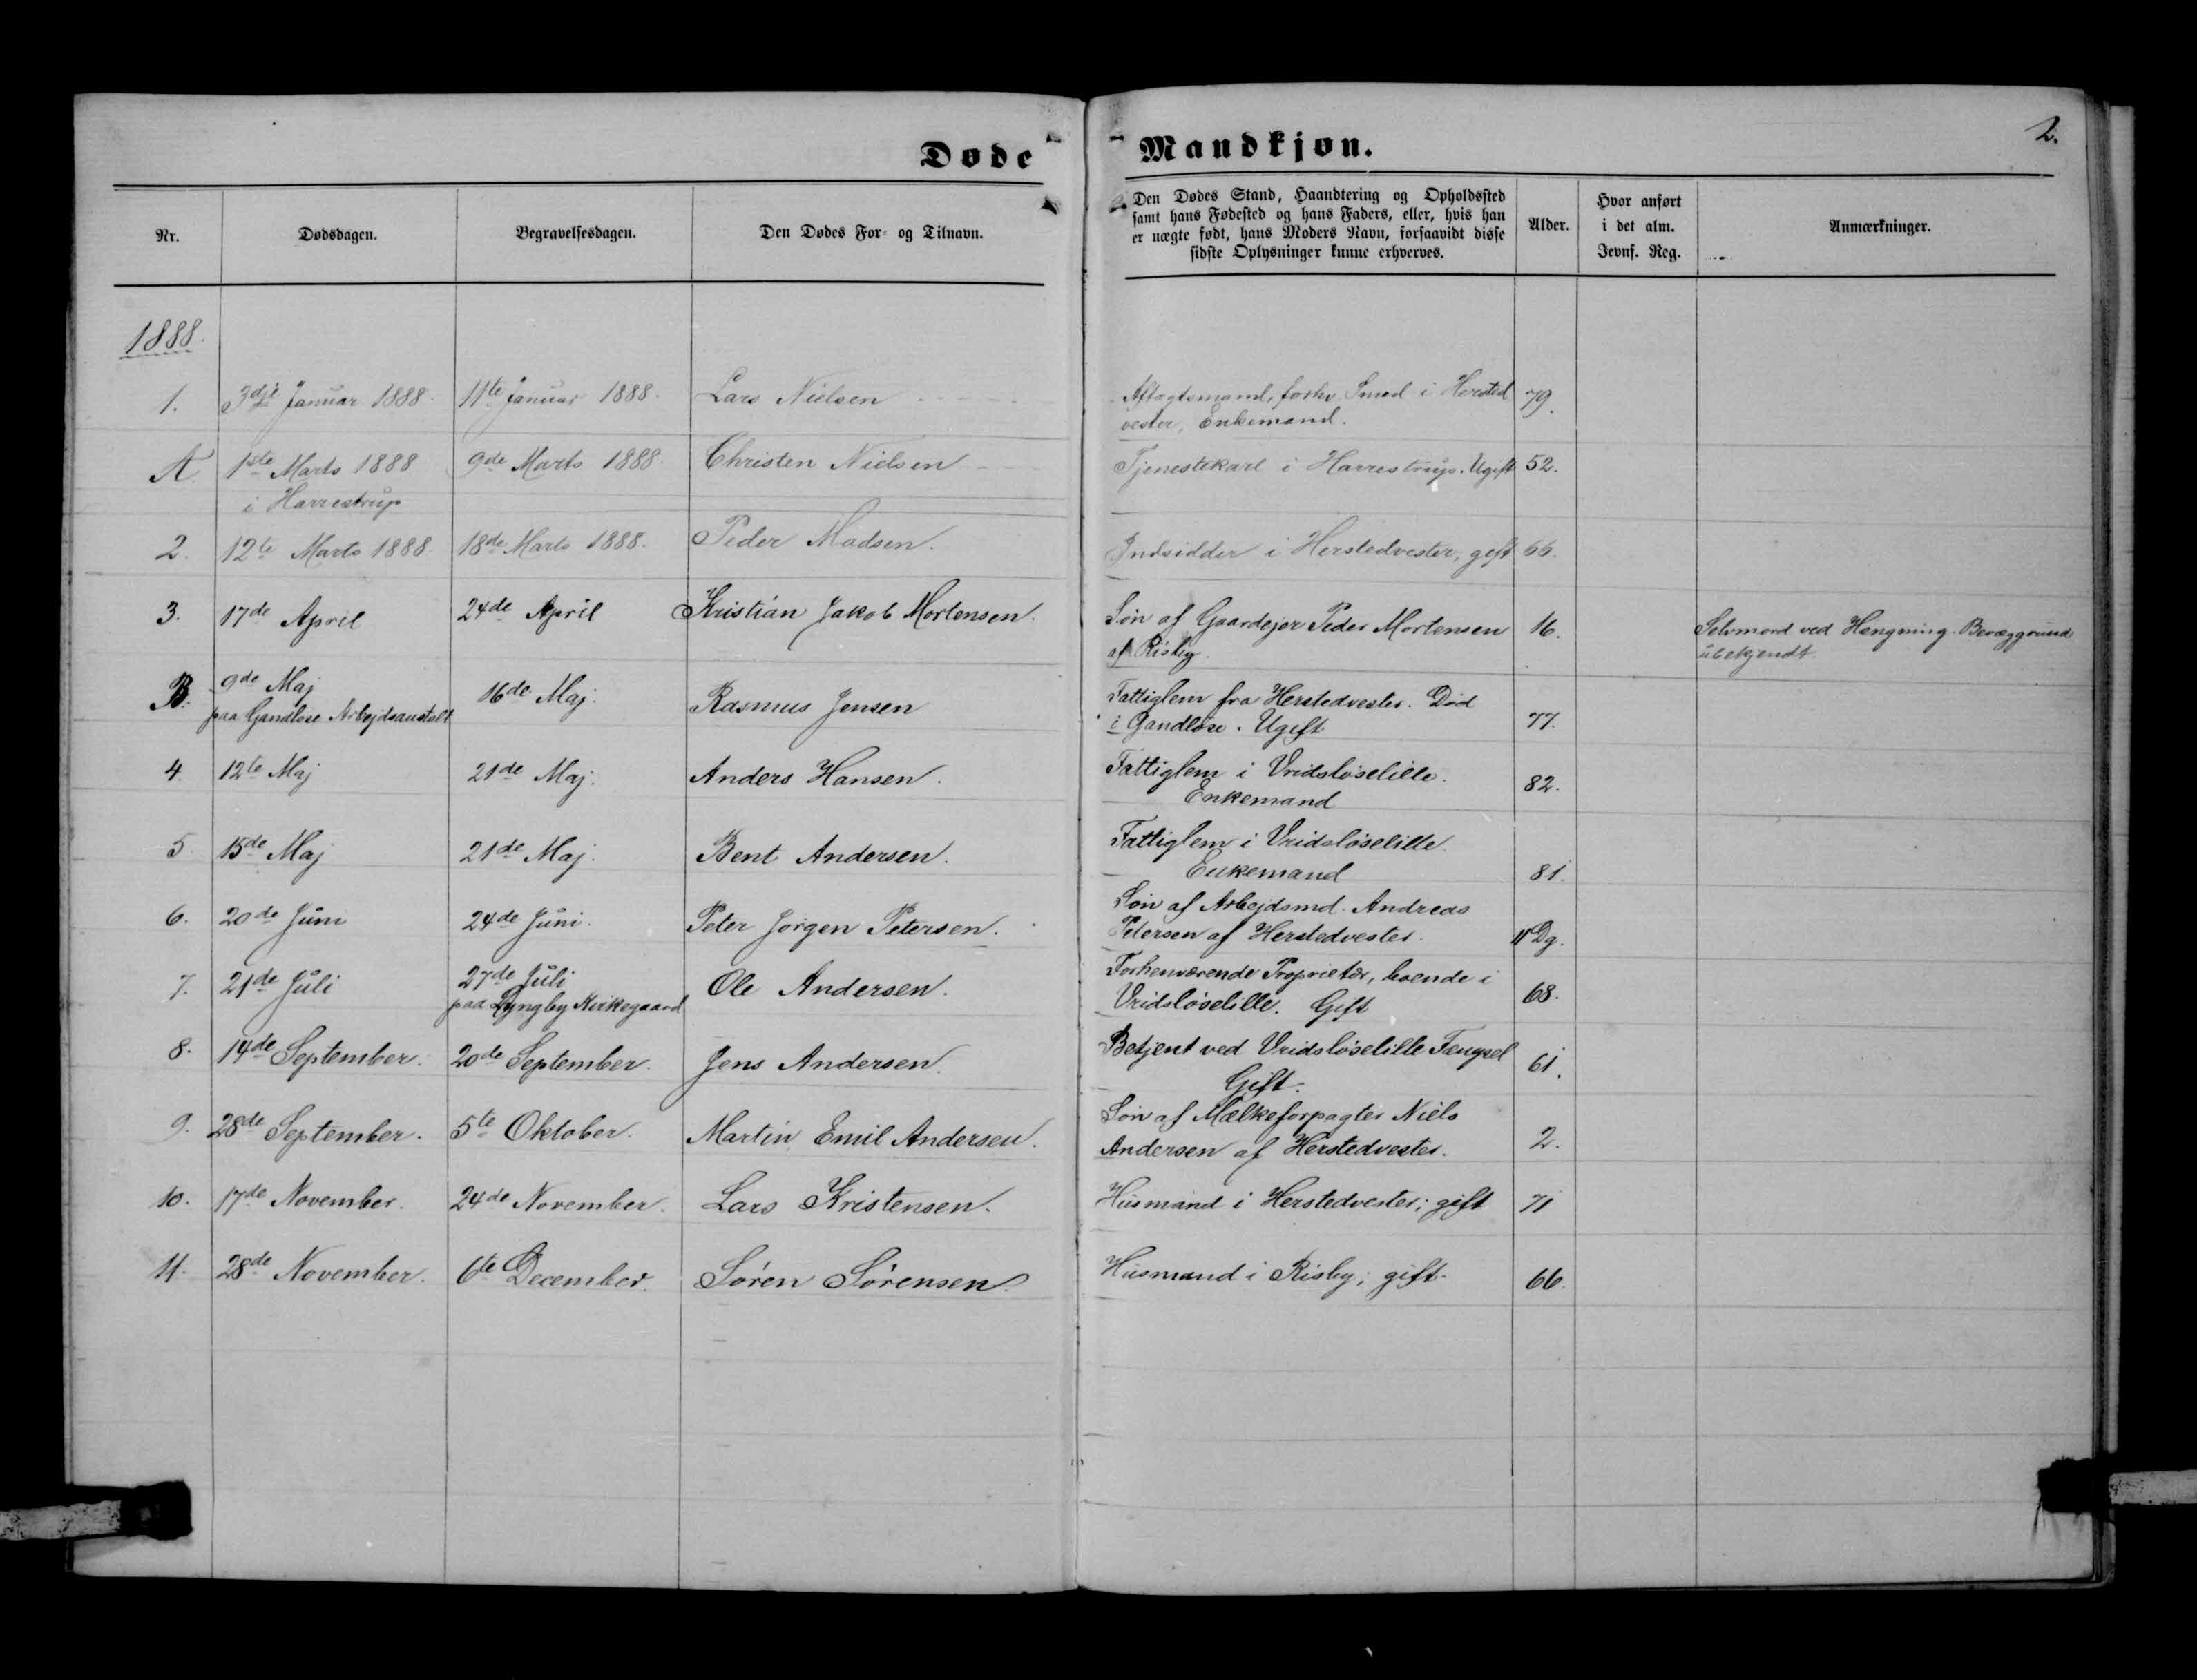 Døde
Mandkjøn.
2.
Nr.
Dødsdagen.
Begravelsesdagen.
Den Dødes For- og Tilnavn.
Den Dødes Stand, Haandtering og Opholdssted
samt hans Fødested og hans Faders, eller, hvis han
er uægte født, hans Moders Navn, forsaavidt disse
sidste Oplysninger kunne erhverves.
Alder.
Hvor anført
i det alm.
Jevnf. Reg.
Anmærkninger.
1888.
1. 3die Januar 1888. 11te Januar 1888. Lars Nielsen Aftægtsmand, forhv. Smed i Hersted 79.
vester, Enkemand.
A. 1ste Marts 1888 9de Marts 1888. Christen Nielsen Tjenestekarl i Harrestrup. Ugift 52.
i Harrestrup
2. 12te Marts 1888. 18de Marts 1888. Peder Madsen. Indsidder i Herstedvester, gift 66.
3. 17de April 24de April Kristian Jakob Mortensen. Søn af Gaardejer Peder Mortensen 16. Selvmord ved Hængning. Bevæggrund
af Risby. ubekjendt.
B. 9de Maj 16de Maj. Rasmus Jensen Fattiglem fra Herstedvester. Død 77.
paa Gandløse Arbejdsanstalt i Gandløse. Ugift
4 12te Maj 21de Maj. Anders Hansen. Fattiglem i Vridsløselille. 82.
Enkemand
5. 15de Maj 21de Maj. Bent Andersen. Fattiglem i Vridsløselille.
Enkemand 81.
6. 20de Juni 24de Juni. Peter Jørgen Petersen. Søn af Arbejdsmd. Andreas
Petersen af Herstedvester. 11 Dg.
7. 21de Juli 27de Juli Ole Andersen. Forhenværende Proprietær, boende i 68.
paa Lyngby Kirkegaard Vridsløselille. Gift
8. 14de September. 20de September. Jens Andersen. Betjent ved Vridsløselille Fængsel 61.
Gift.
9. 28de September. 5te Oktober. Martin Emil Andersen. Søn af Mælkeforpagter Niels
Andersen af Herstedvester. 2.
10. 17de November. 24de November. Lars Kristensen. Husmand i Herstedvester; gift 71
11. 28de November. 6te December. Søren Sørensen. Husmand i Risby; gift. 66.